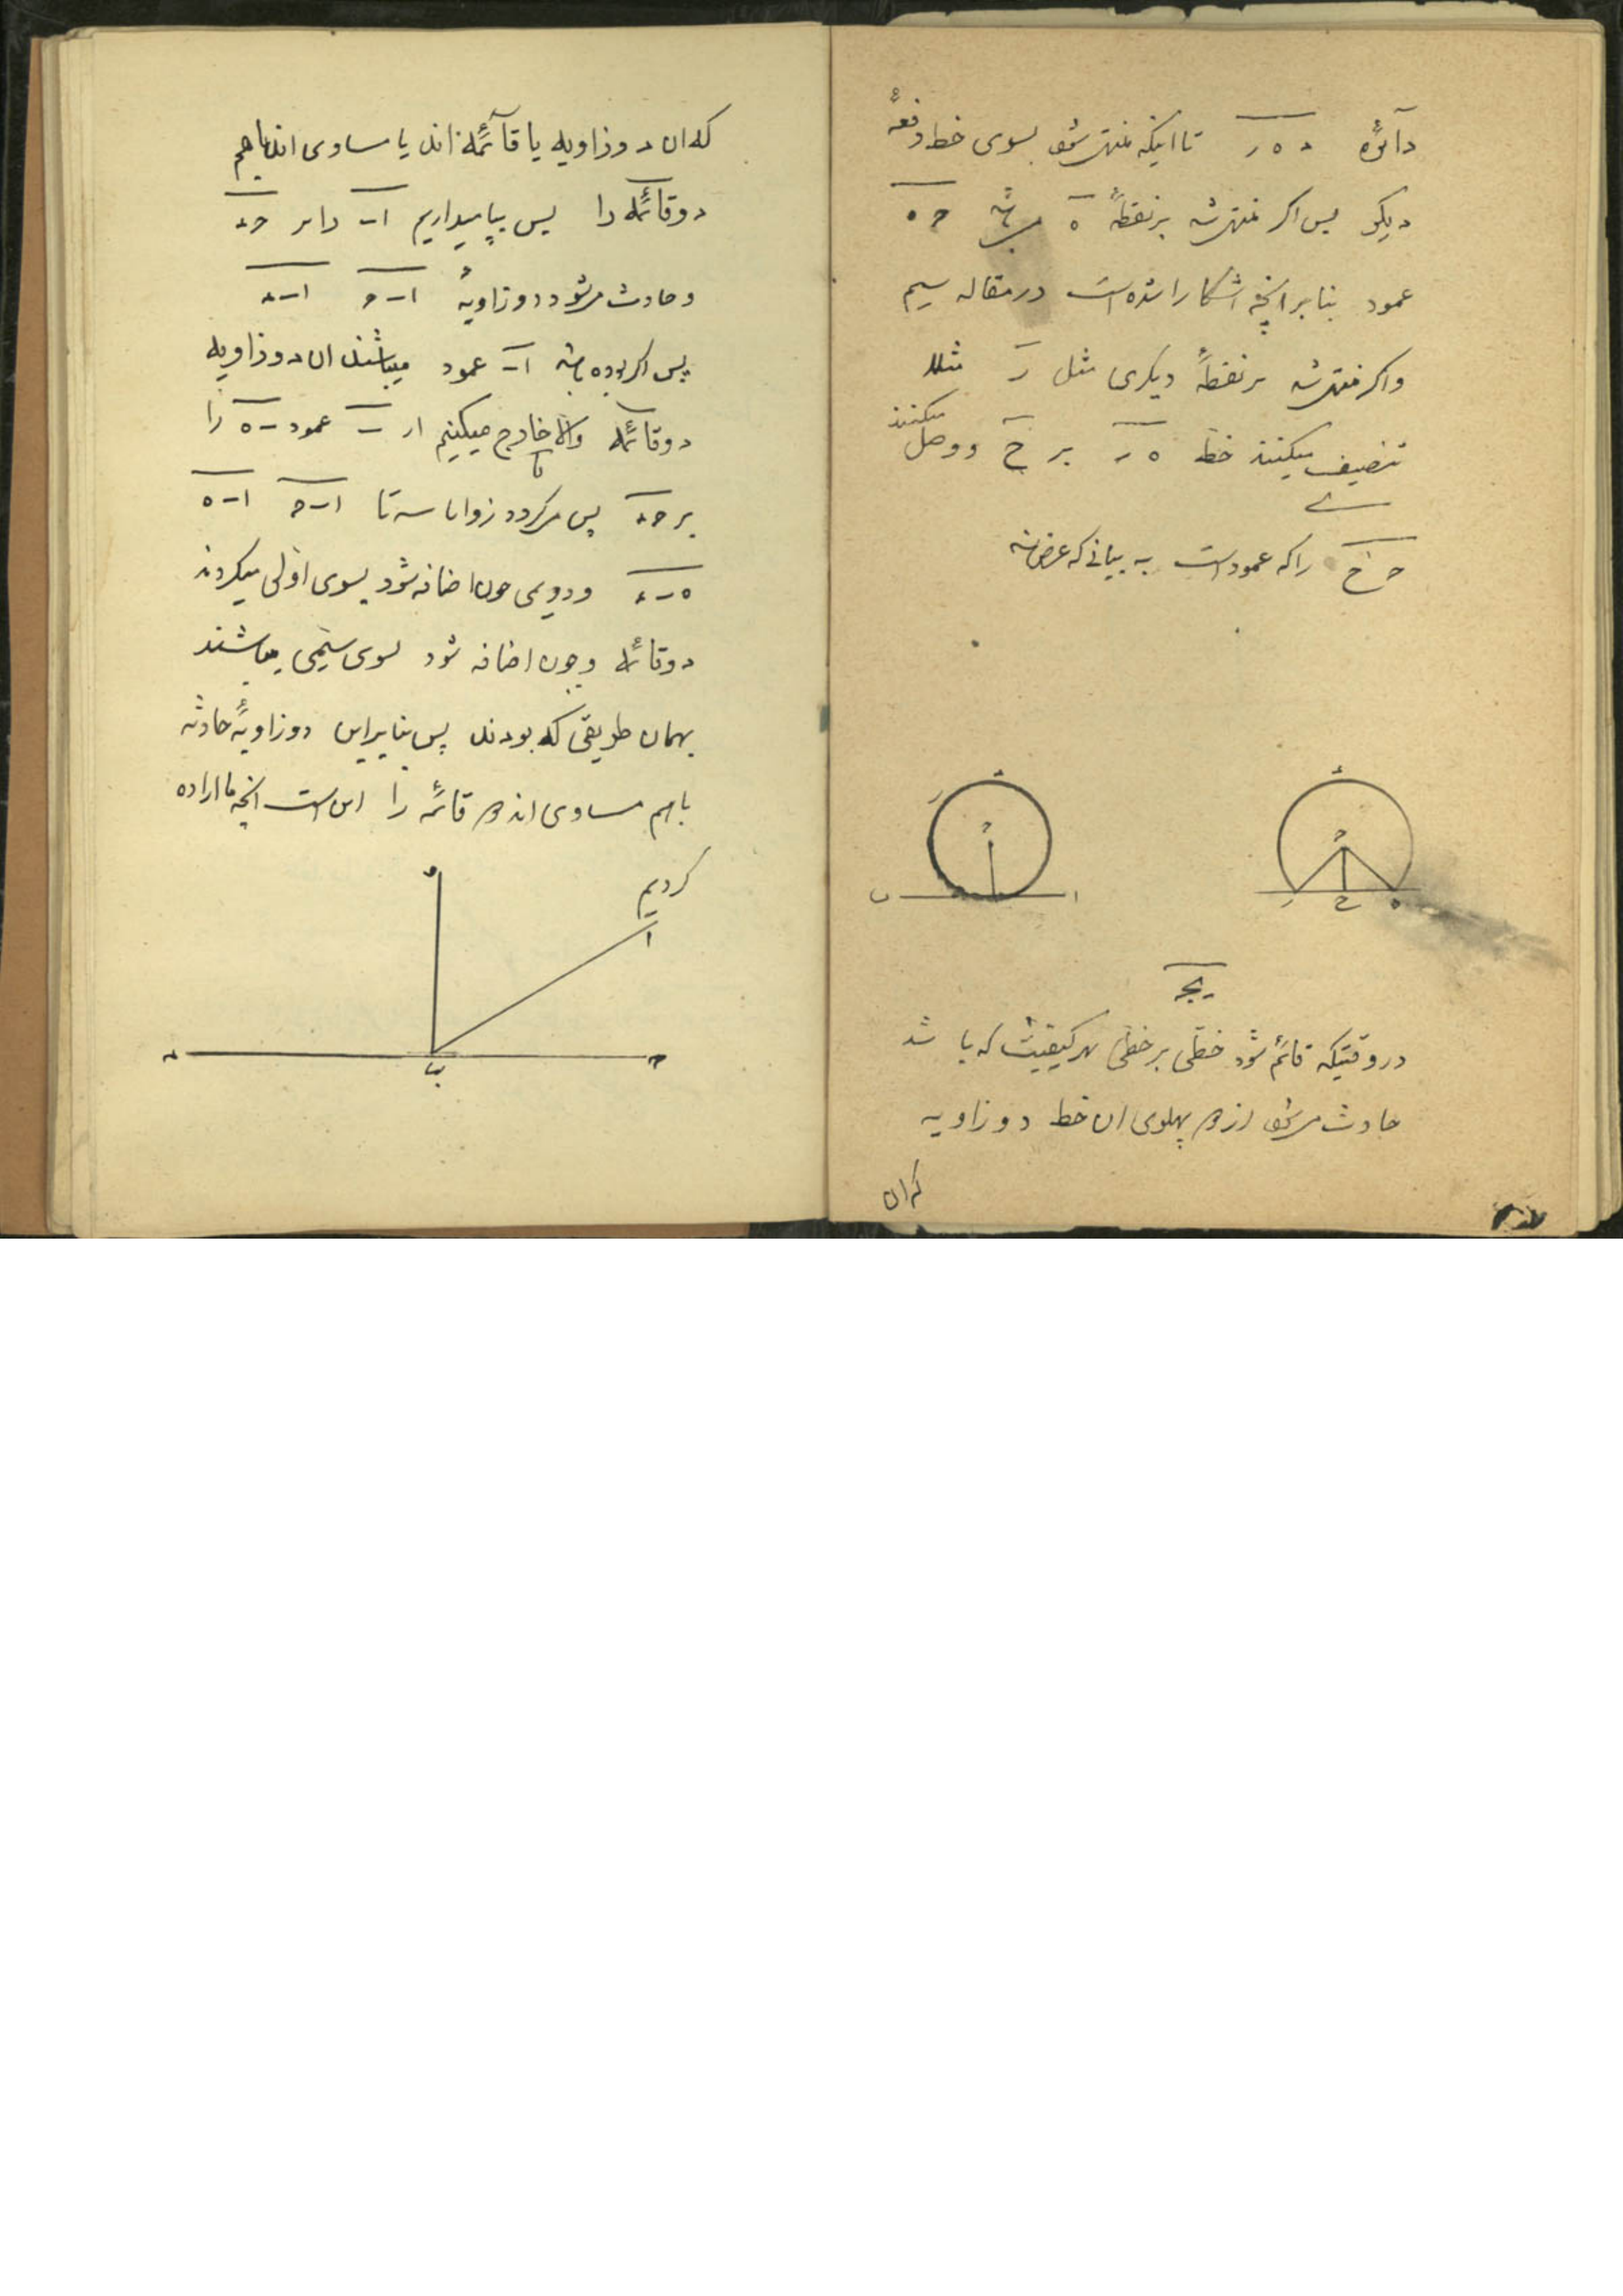 دآئرهٔ د ه ر تا اینکه منتهی شود بسوی خط دفعهٔ
دیگر پس اگر منتهی شد بر نقطهٔ ه میباشد ح ه
عمود بنابر انچه اشکارا شده است در مقاله سیم
و اگر منتهی شد بر نقطهٔ دیگری مثل ر مثلا
تنصیف میکنند خط ه ر بر ح و وصل میکنند
ح ح را که عمود است به بیانی که عرض شد
د
ر
ح
ب
ا
د
ح
ر
ح
ه
یج
در وقتیکه قائم شود خطی بر خطی بهر کیفیت که باشد
حادث میشود از دو پهلوی ان خط دو زاویه
که ان
که ان دو زاویه یا قآئمه اند یا مساوی اند باهم
دو قائمه را پس بپا میداریم ا ب را بر ح د
و حادث میشود دو زاویهٔ ا ب ح ا ب د
پس اگر بوده باشد ا ب عمود میباشند ان دو زاویه
دو قائمه والا خارج میکنیم از ب عمود ب ه را
بر ح د پس میگردد زوایا سه تا ا ب ح ا ب ه
ه ب د و دویمی چون اضافه شود بسوی اولی میگردند
دو قائمه و چون اضافه شود بسوی سیمی میباشند
بهمان طریقی که بودند پس بنابراین دو زاویهٔ حادثه
باهم مساوی اند دو قائمه را این است انچه ما اراده
کردیم
ه
ا
د
ب
ح